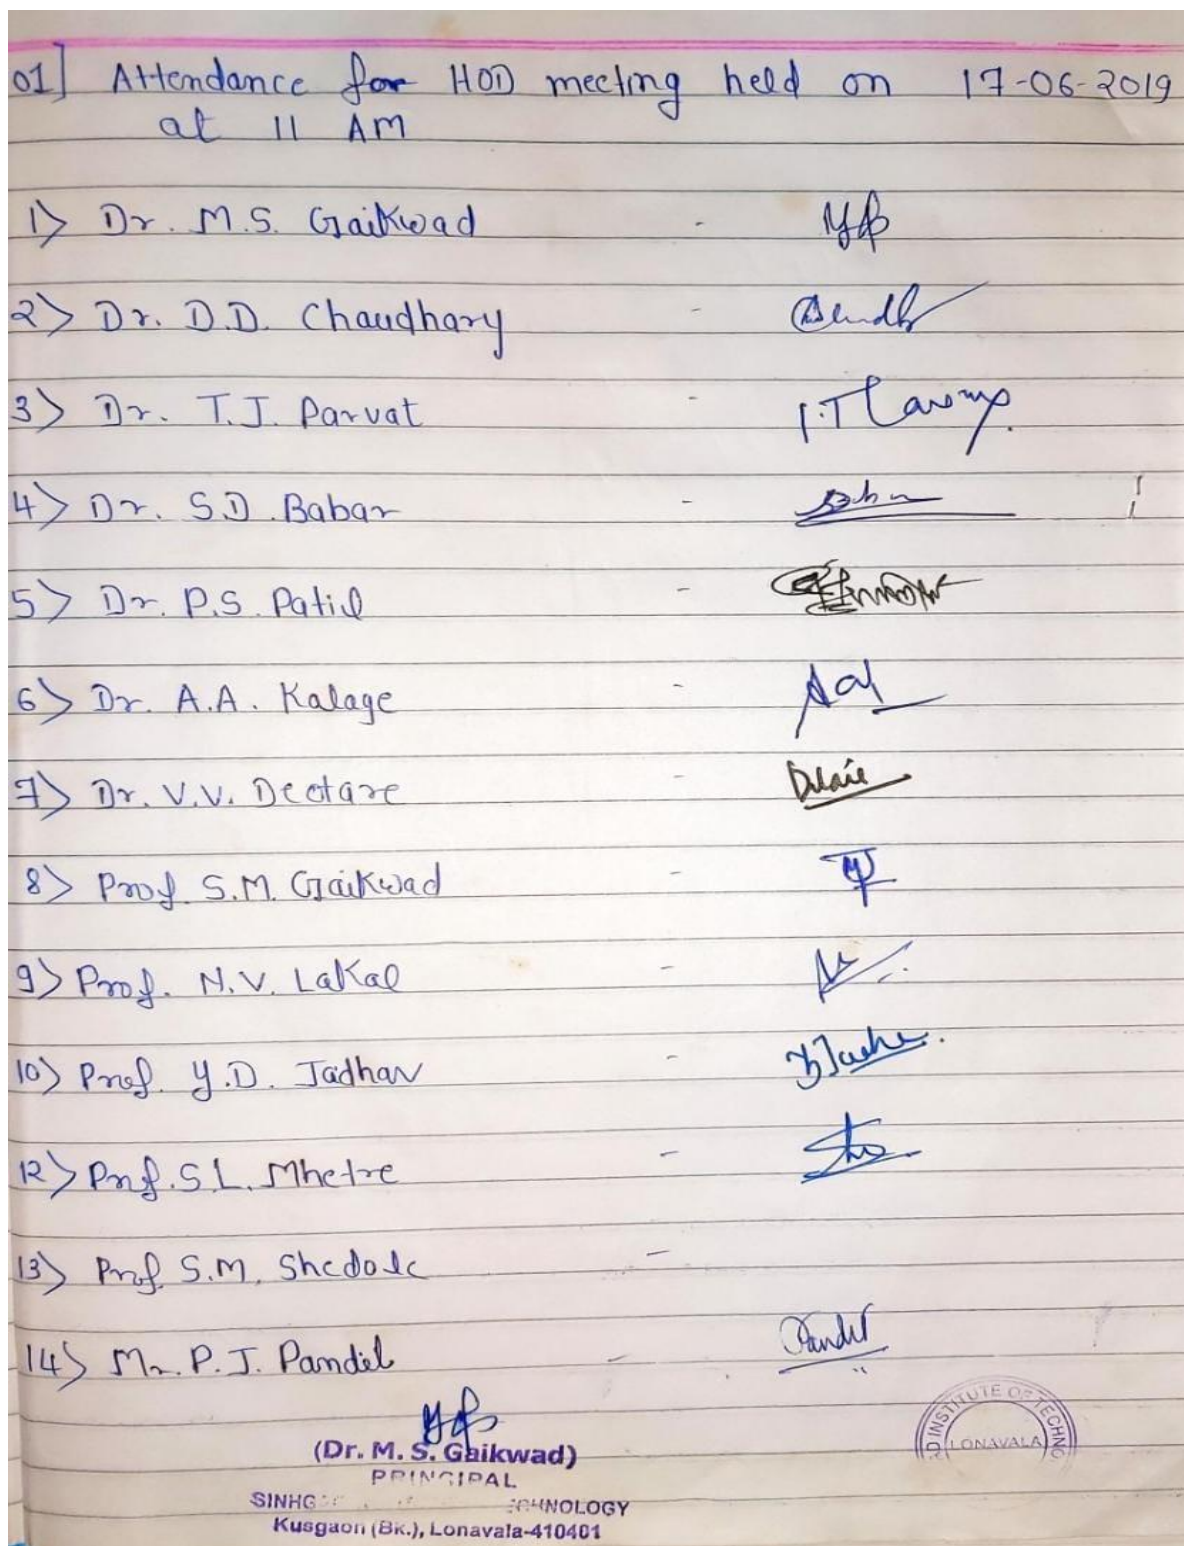 01] Attendance for HOD meeting held on 17-06-2019
at 11 AM
1) Dr. M.S. Gaikwad -
2) Dr. D.D. Chaudhary -
3) Dr. T.J. Parvat -
4) Dr. S.D. Babar -
5) Dr. P.S. Patil -
6) Dr. A.A. Kalage -
7) Dr. V.V. Deotare -
8) Prof. S.M. Gaikwad -
9) Prof. N.V. Lakal -
10) Prof. Y.D. Jadhav -
12) Prof. S.L. Mhetre -
13) Prof. S.M. Shedole -
14) Mr. P.J. Pandit -
(Dr. M. S. Gaikwad)
PRINCIPAL
Kusgaon (Bk.), Lonavala-410401
INSTITUTE OF
LONAVALA